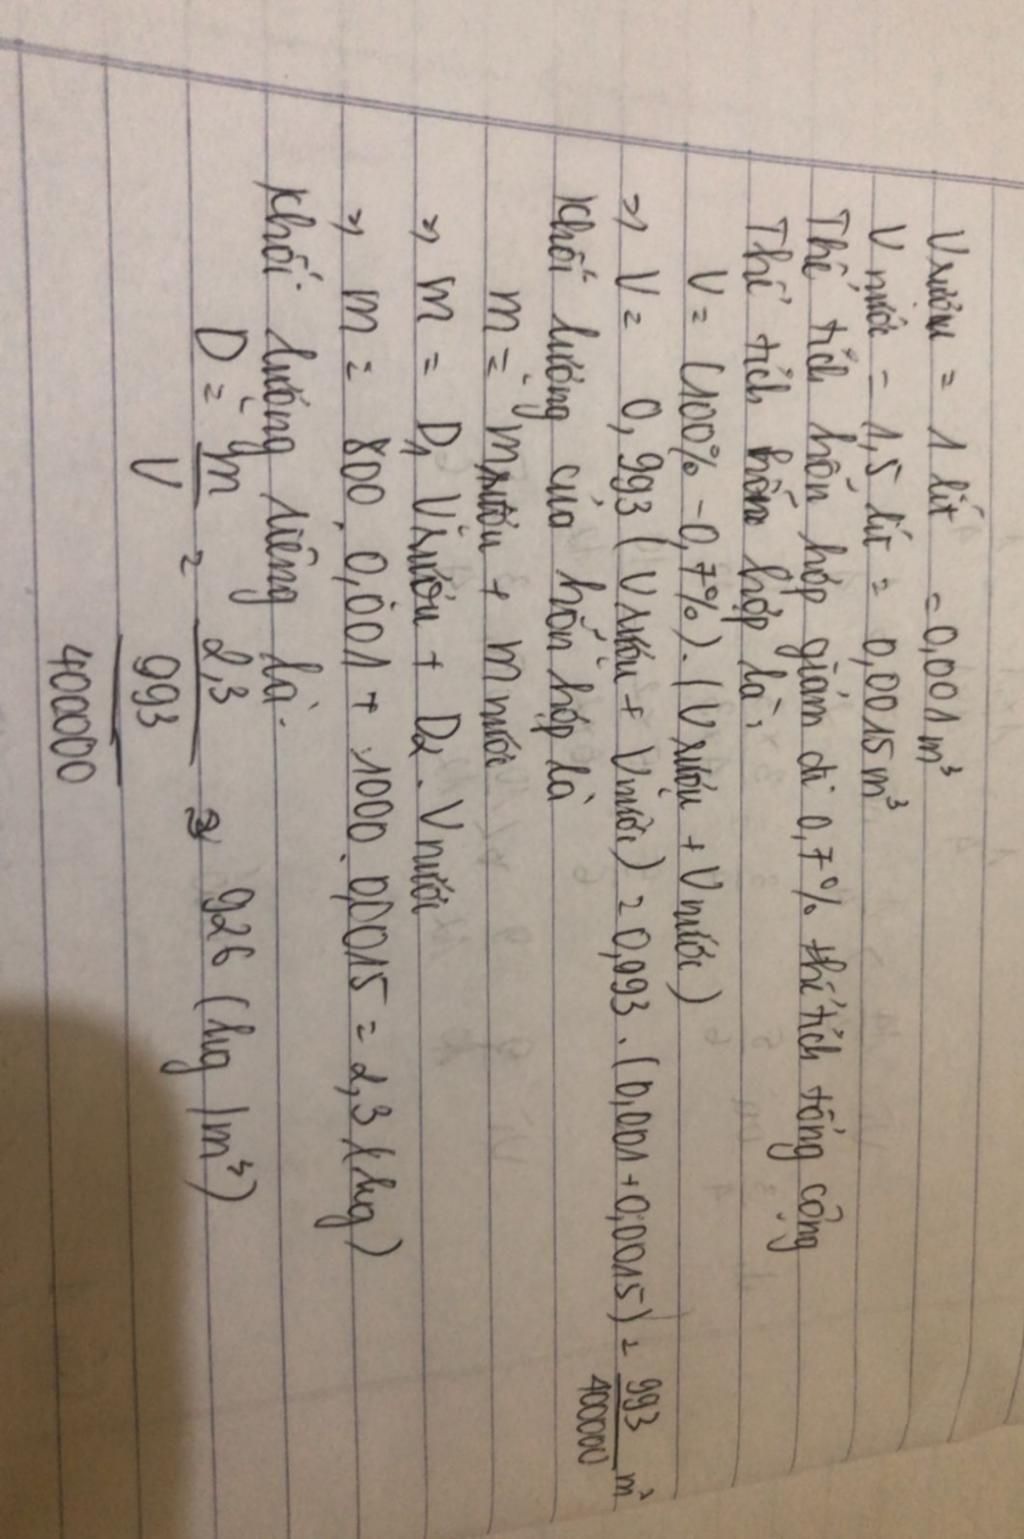 V rượu = 1 lít = 0,001 m³
V nước = 1,5 lít = 0,0015 m³
Thể tích hỗn hợp giảm đi 0,7% thể tích tổng cộng
Thể tích hỗn hợp là:
V = (100% - 0,7%). (V rượu + V nước)
=> V = 0,993 (V rượu + V nước) = 0,993 . (0,001 + 0,0015) = 993/400000 m³
Khối lượng của hỗn hợp là
m = m rượu + m nước
=> m = D₁ V rượu + D₂ . V nước
=> m = 800 . 0,001 + 1000 . 0,0015 = 2,3 (kg)
Khối lượng riêng là.
D = m/V = 2,3/(993/400000) ≈ 926 (kg/m³)